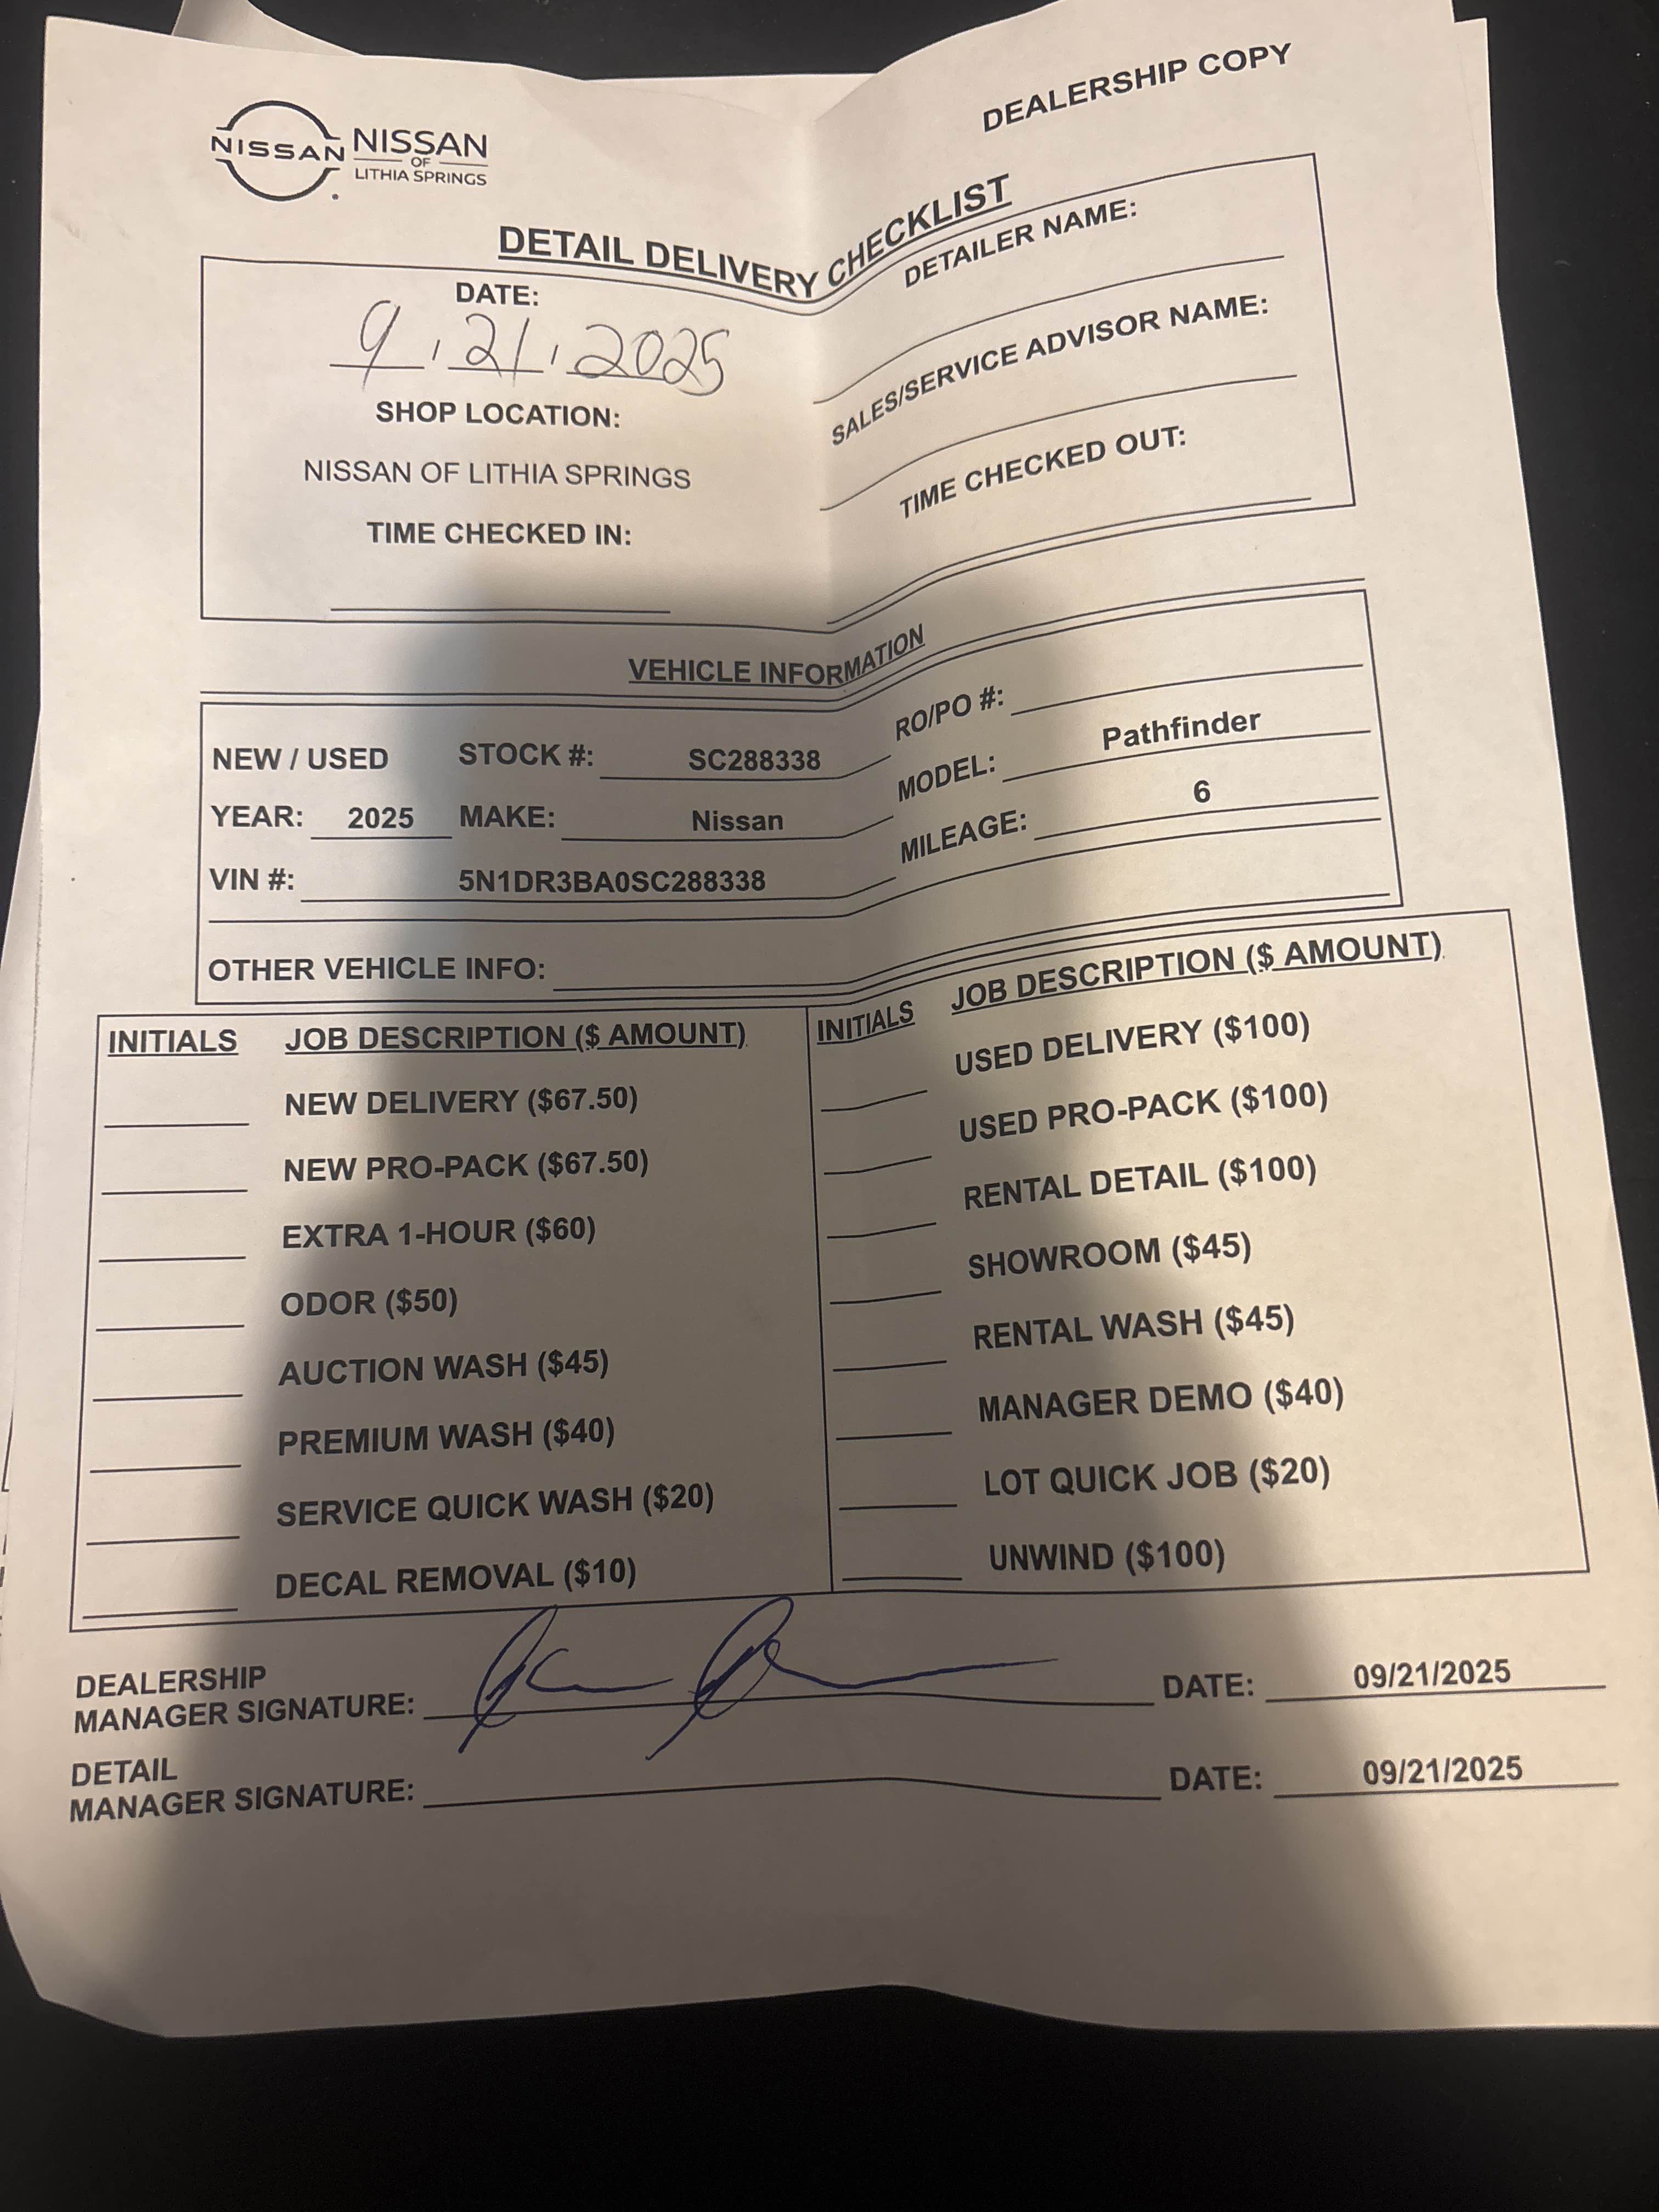 DEALERSHIP COPY
NISSAN
NISSAN
OF
LITHIA SPRINGS
DETAIL DELIVERY CHECKLIST
DATE:
9 , 21 , 2025
SHOP LOCATION:
NISSAN OF LITHIA SPRINGS
TIME CHECKED IN:
DETAILER NAME:
SALES/SERVICE ADVISOR NAME:
TIME CHECKED OUT:
VEHICLE INFORMATION
NEW / USED STOCK #: SC288338 RO/PO #:
YEAR: 2025 MAKE: Nissan MODEL: Pathfinder
VIN #: 5N1DR3BA0SC288338 MILEAGE: 6
OTHER VEHICLE INFO:
INITIALS JOB DESCRIPTION ($ AMOUNT)
NEW DELIVERY ($67.50)
NEW PRO-PACK ($67.50)
EXTRA 1-HOUR ($60)
ODOR ($50)
AUCTION WASH ($45)
PREMIUM WASH ($40)
SERVICE QUICK WASH ($20)
DECAL REMOVAL ($10)
INITIALS JOB DESCRIPTION ($ AMOUNT)
USED DELIVERY ($100)
USED PRO-PACK ($100)
RENTAL DETAIL ($100)
SHOWROOM ($45)
RENTAL WASH ($45)
MANAGER DEMO ($40)
LOT QUICK JOB ($20)
UNWIND ($100)
DEALERSHIP
MANAGER SIGNATURE: DATE: 09/21/2025
DETAIL
MANAGER SIGNATURE: DATE: 09/21/2025